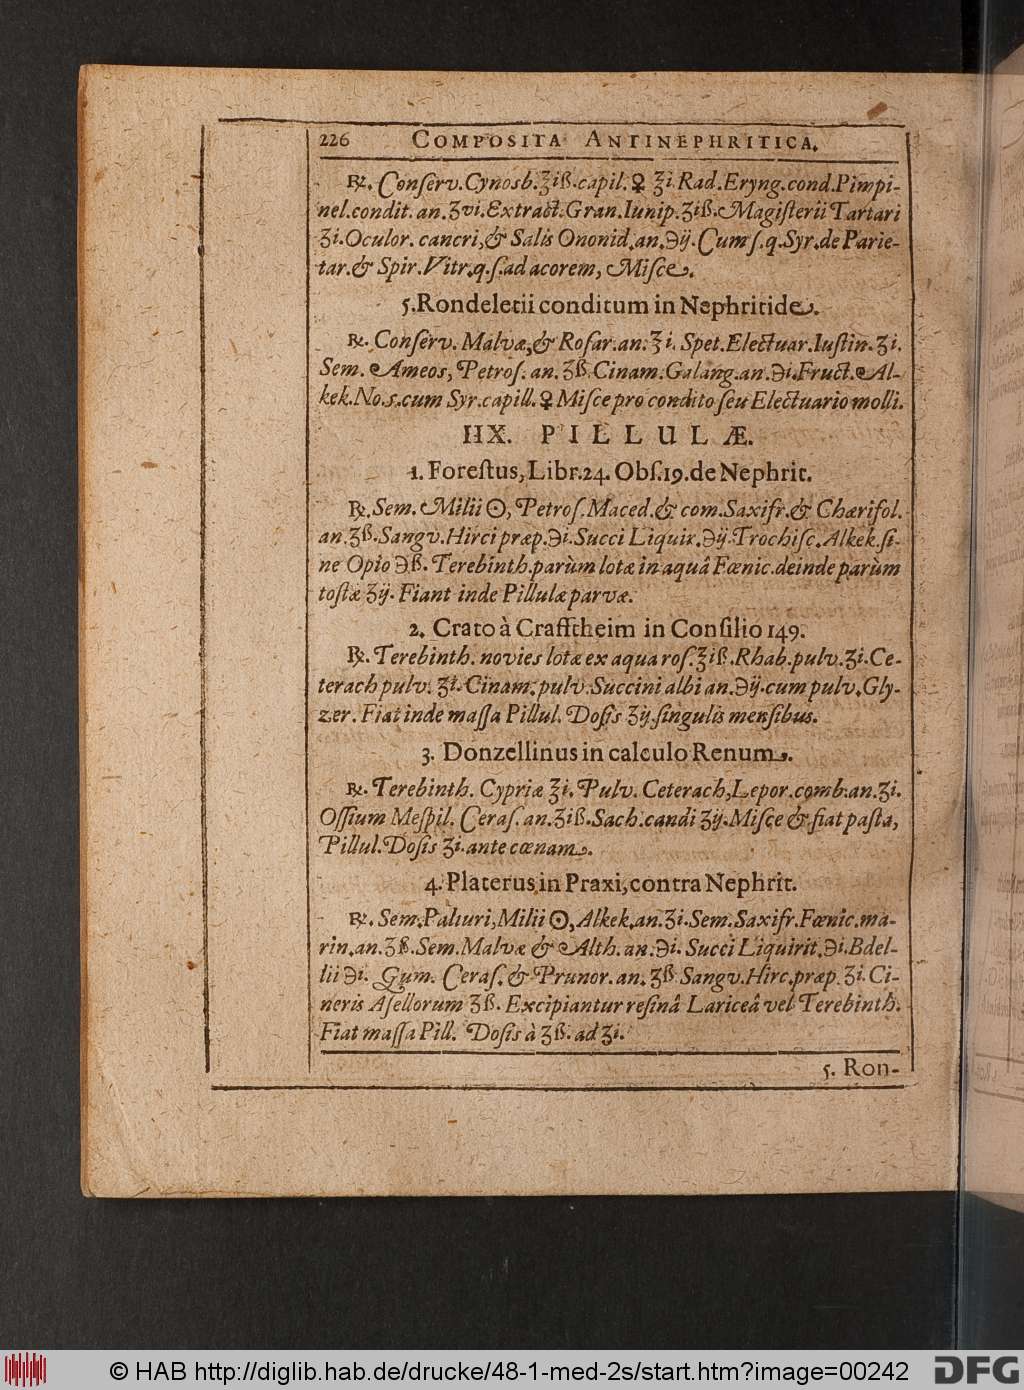 226 COMPOSITA ANTINEPHRITICA.
℞. Conſerv. Cynosb. ʒiß. capil. ♀ ʒi Rad. Eryng. cond. Pimpi-
nel. condit. an. ʒvi. Extract. Gran. Iunip. ʒiß. Magiſterii Tartari
ʒi. Oculor. cancri, & Salis Ononid. an. ℈ij. Cum ſ. q. Syr. de Parie-
tar. & Spir. Vitr. q. ſ. ad acorem, Miſce.
5. Rondeletii conditum in Nephritide.
℞. Conſerv. Malvæ, & Roſar. an. ʒi. Spet. Electuar. Iuſtin. ʒi.
Sem. Ameos, Petroſ. an. ʒß. Cinam. Galang. an. ℈i. Fruct. Al-
kek. No. 5. cum Syr. capill. ♀ Miſce pro condito ſeu Electuario molli.
IIX. PILLULÆ.
1. Foreſtus, Libr. 24. Obſ. 19. de Nephrit.
℞. Sem. Milii ☉, Petroſ. Maced. & com. Saxifr. & Chærifol.
an. ʒß. Sangv. Hirci præp. ℈i. Succi Liquir. ℈ij. Trochiſc. Alkek. ſi-
ne Opio ℈ß. Terebinth. parùm lotæ in aquâ Fœnic. deinde parùm
toſtæ ʒij. Fiant inde Pillulæ parvæ.
2. Crato à Crafftheim in Conſilio 149.
℞. Terebinth. novies lotæ ex aqua roſ. ʒiß. Rhab. pulv. ʒi. Ce-
terach pulv. ʒi. Cinam. pulv. Succini albi an. ℈ij. cum pulv. Gly-
zer. Fiat inde maſſa Pillul. Doſis ʒij. ſingulis menſibus.
3. Donzellinus in calculo Renum.
℞. Terebinth. Cypriæ ʒi. Pulv. Ceterach, Lepor. comb. an. ʒi.
Oſſium Meſpil. Ceraſ. an. ʒiß. Sach. candi ʒij. Miſce & fiat paſta,
Pillul. Doſis ʒi. ante cœnam.
4. Platerus in Praxi, contra Nephrit.
℞. Sem. Paliuri, Milii ☉, Alkek. an. ʒi. Sem. Saxifr. Fœnic. ma-
rin. an. ʒß. Sem. Malvæ & Alth. an. ℈i. Succi Liquirit. ℈i. Bdel-
lii ℈i. Gum. Ceraſ. & Prunor. an. ʒß Sangv. Hirc. præp. ʒi. Ci-
neris Aſellorum ʒß. Excipiantur reſinâ Lariceâ vel Terebinth.
Fiat maſſa Pill. Doſis à ʒß. ad ʒi.
5. Ron-
© HAB http://diglib.hab.de/drucke/48-1-med-2s/start.htm?image=00242 DFG